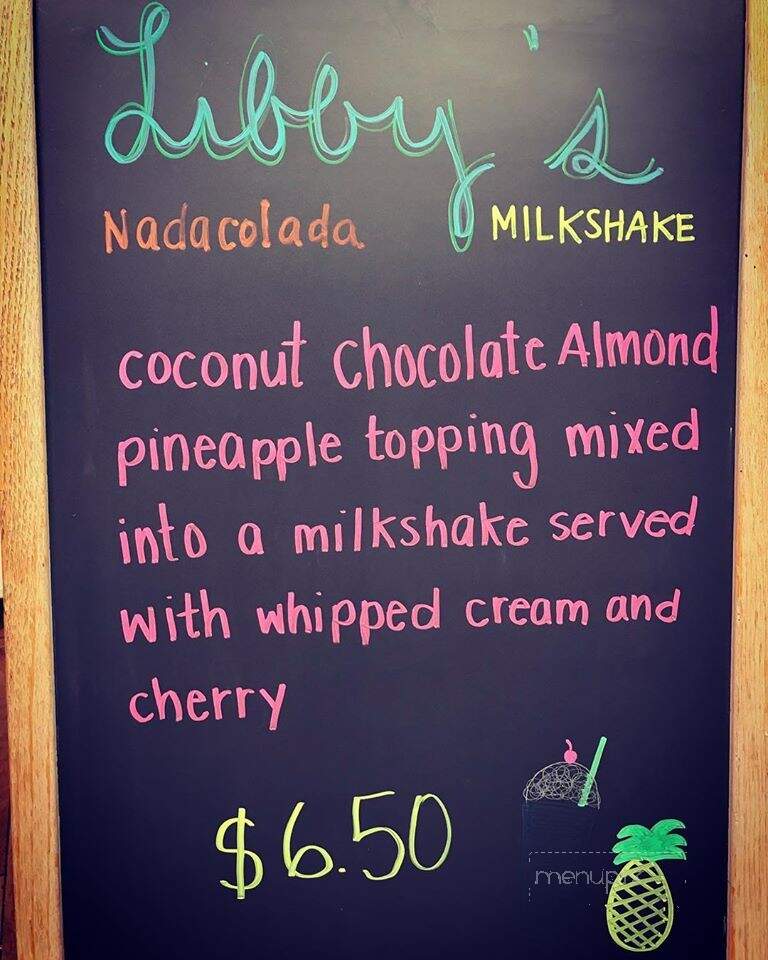 Libby's
Nadacolada MILKSHAKE
coconut chocolate Almond
pineapple topping mixed
into a milkshake served
with whipped cream and
cherry
$6.50